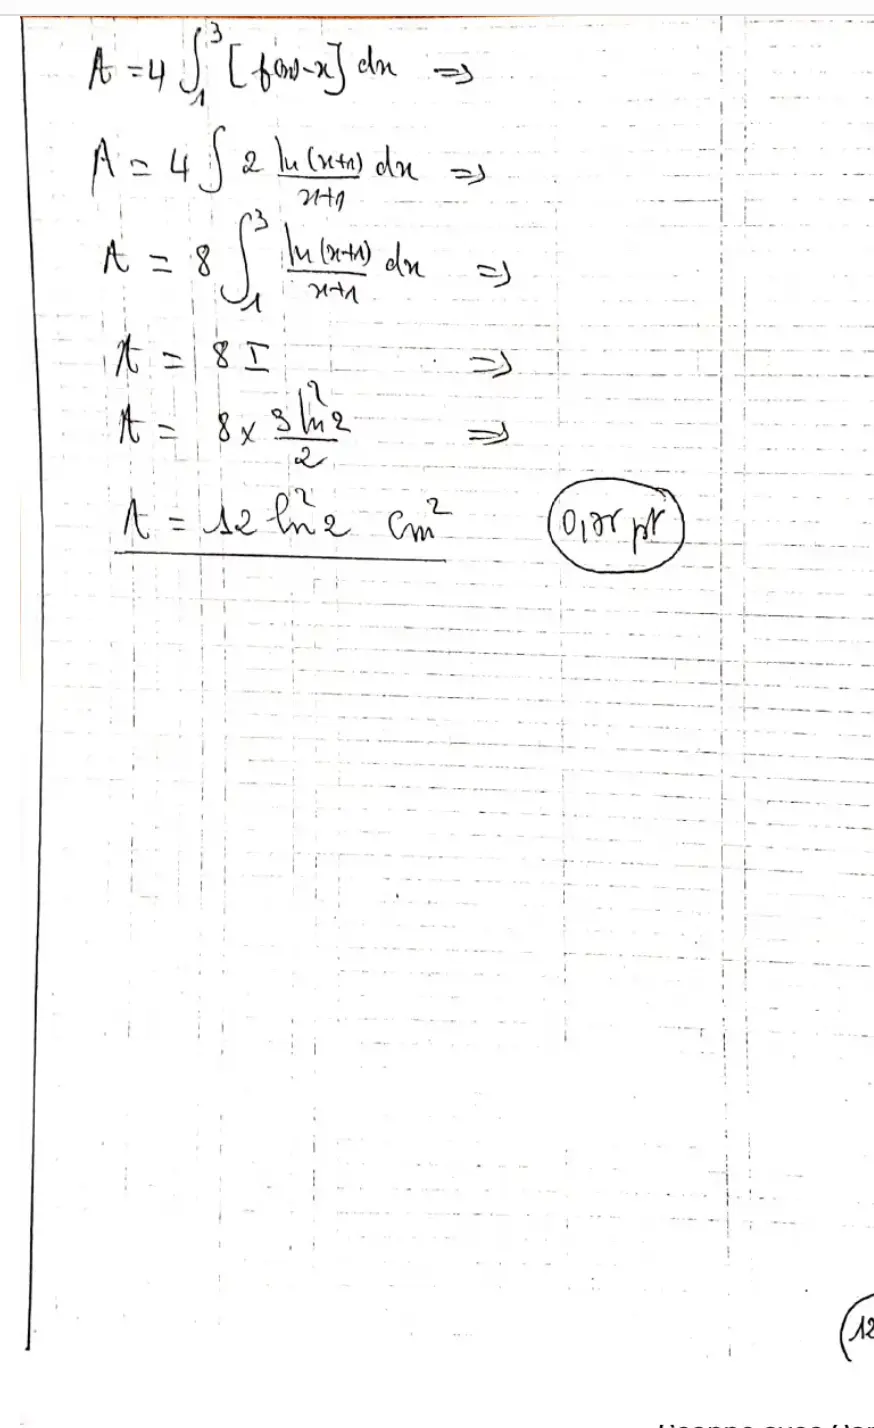 A = 4 ∫₁³ [f(x)-x] dx ⇒
A = 4 ∫ 2 ln(x+1)/x+1 dx ⇒
A = 8 ∫₁³ ln(x+1)/x+1 dx ⇒
A = 8 I ⇒
A = 8 × 3 ln²2/2 ⇒
A = 12 ln²2 cm²
pt
12